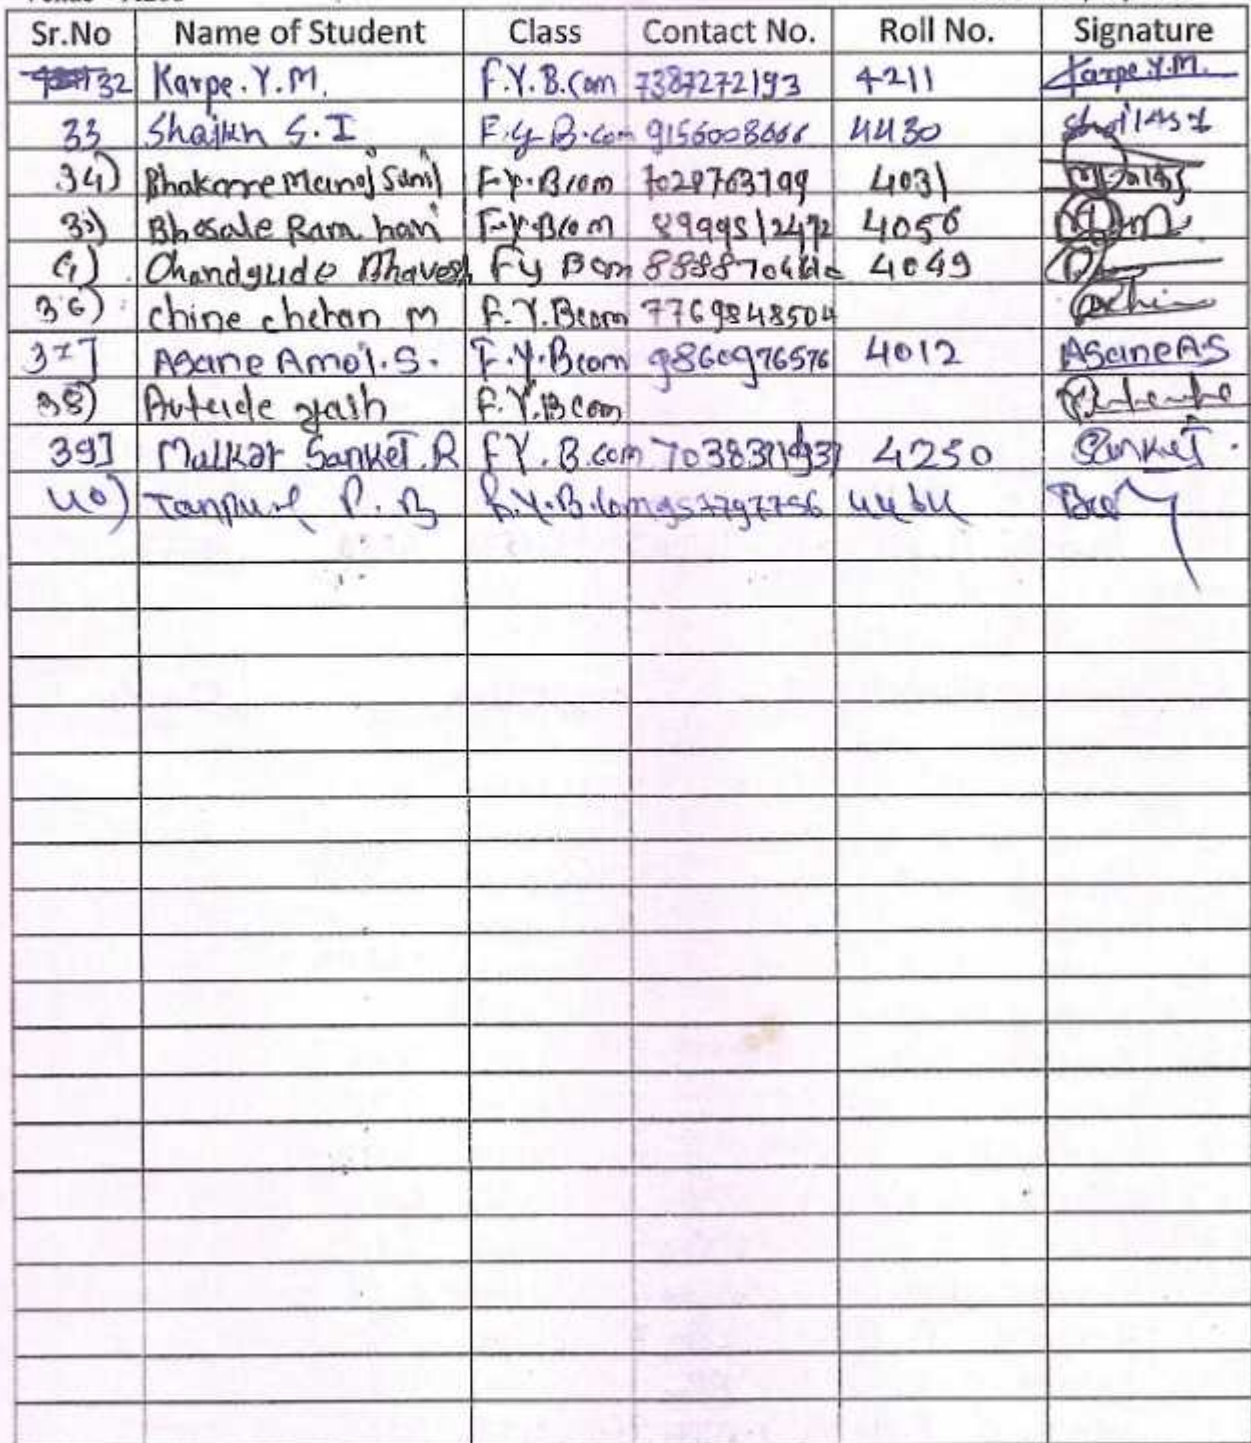 Sr.No Name of Student Class Contact No. Roll No. Signature
32 Karpe. Y. M. F. Y. B. Com 7387272193 4211 Karpe Y.M.
33 Shaikh S. I F. y B. com 4430
34) Bhakare Manoj Sunil F. y. B com 7028763199 4031
35) Bhosale Ram hari F. y. B com 8999512472 4056
Chandgude Bhavesh Fy B com 4049
36) chine chetan m F. Y. Bcom 7769848504
37] Asane Amol. S. F. y. Bcom 9860976576 4012 Asane AS
38) yash F. Y. B com
39] Malkar Sanket. R FY. B. com 4250 Sanket.
40) P. B F. Y. B. com 4464